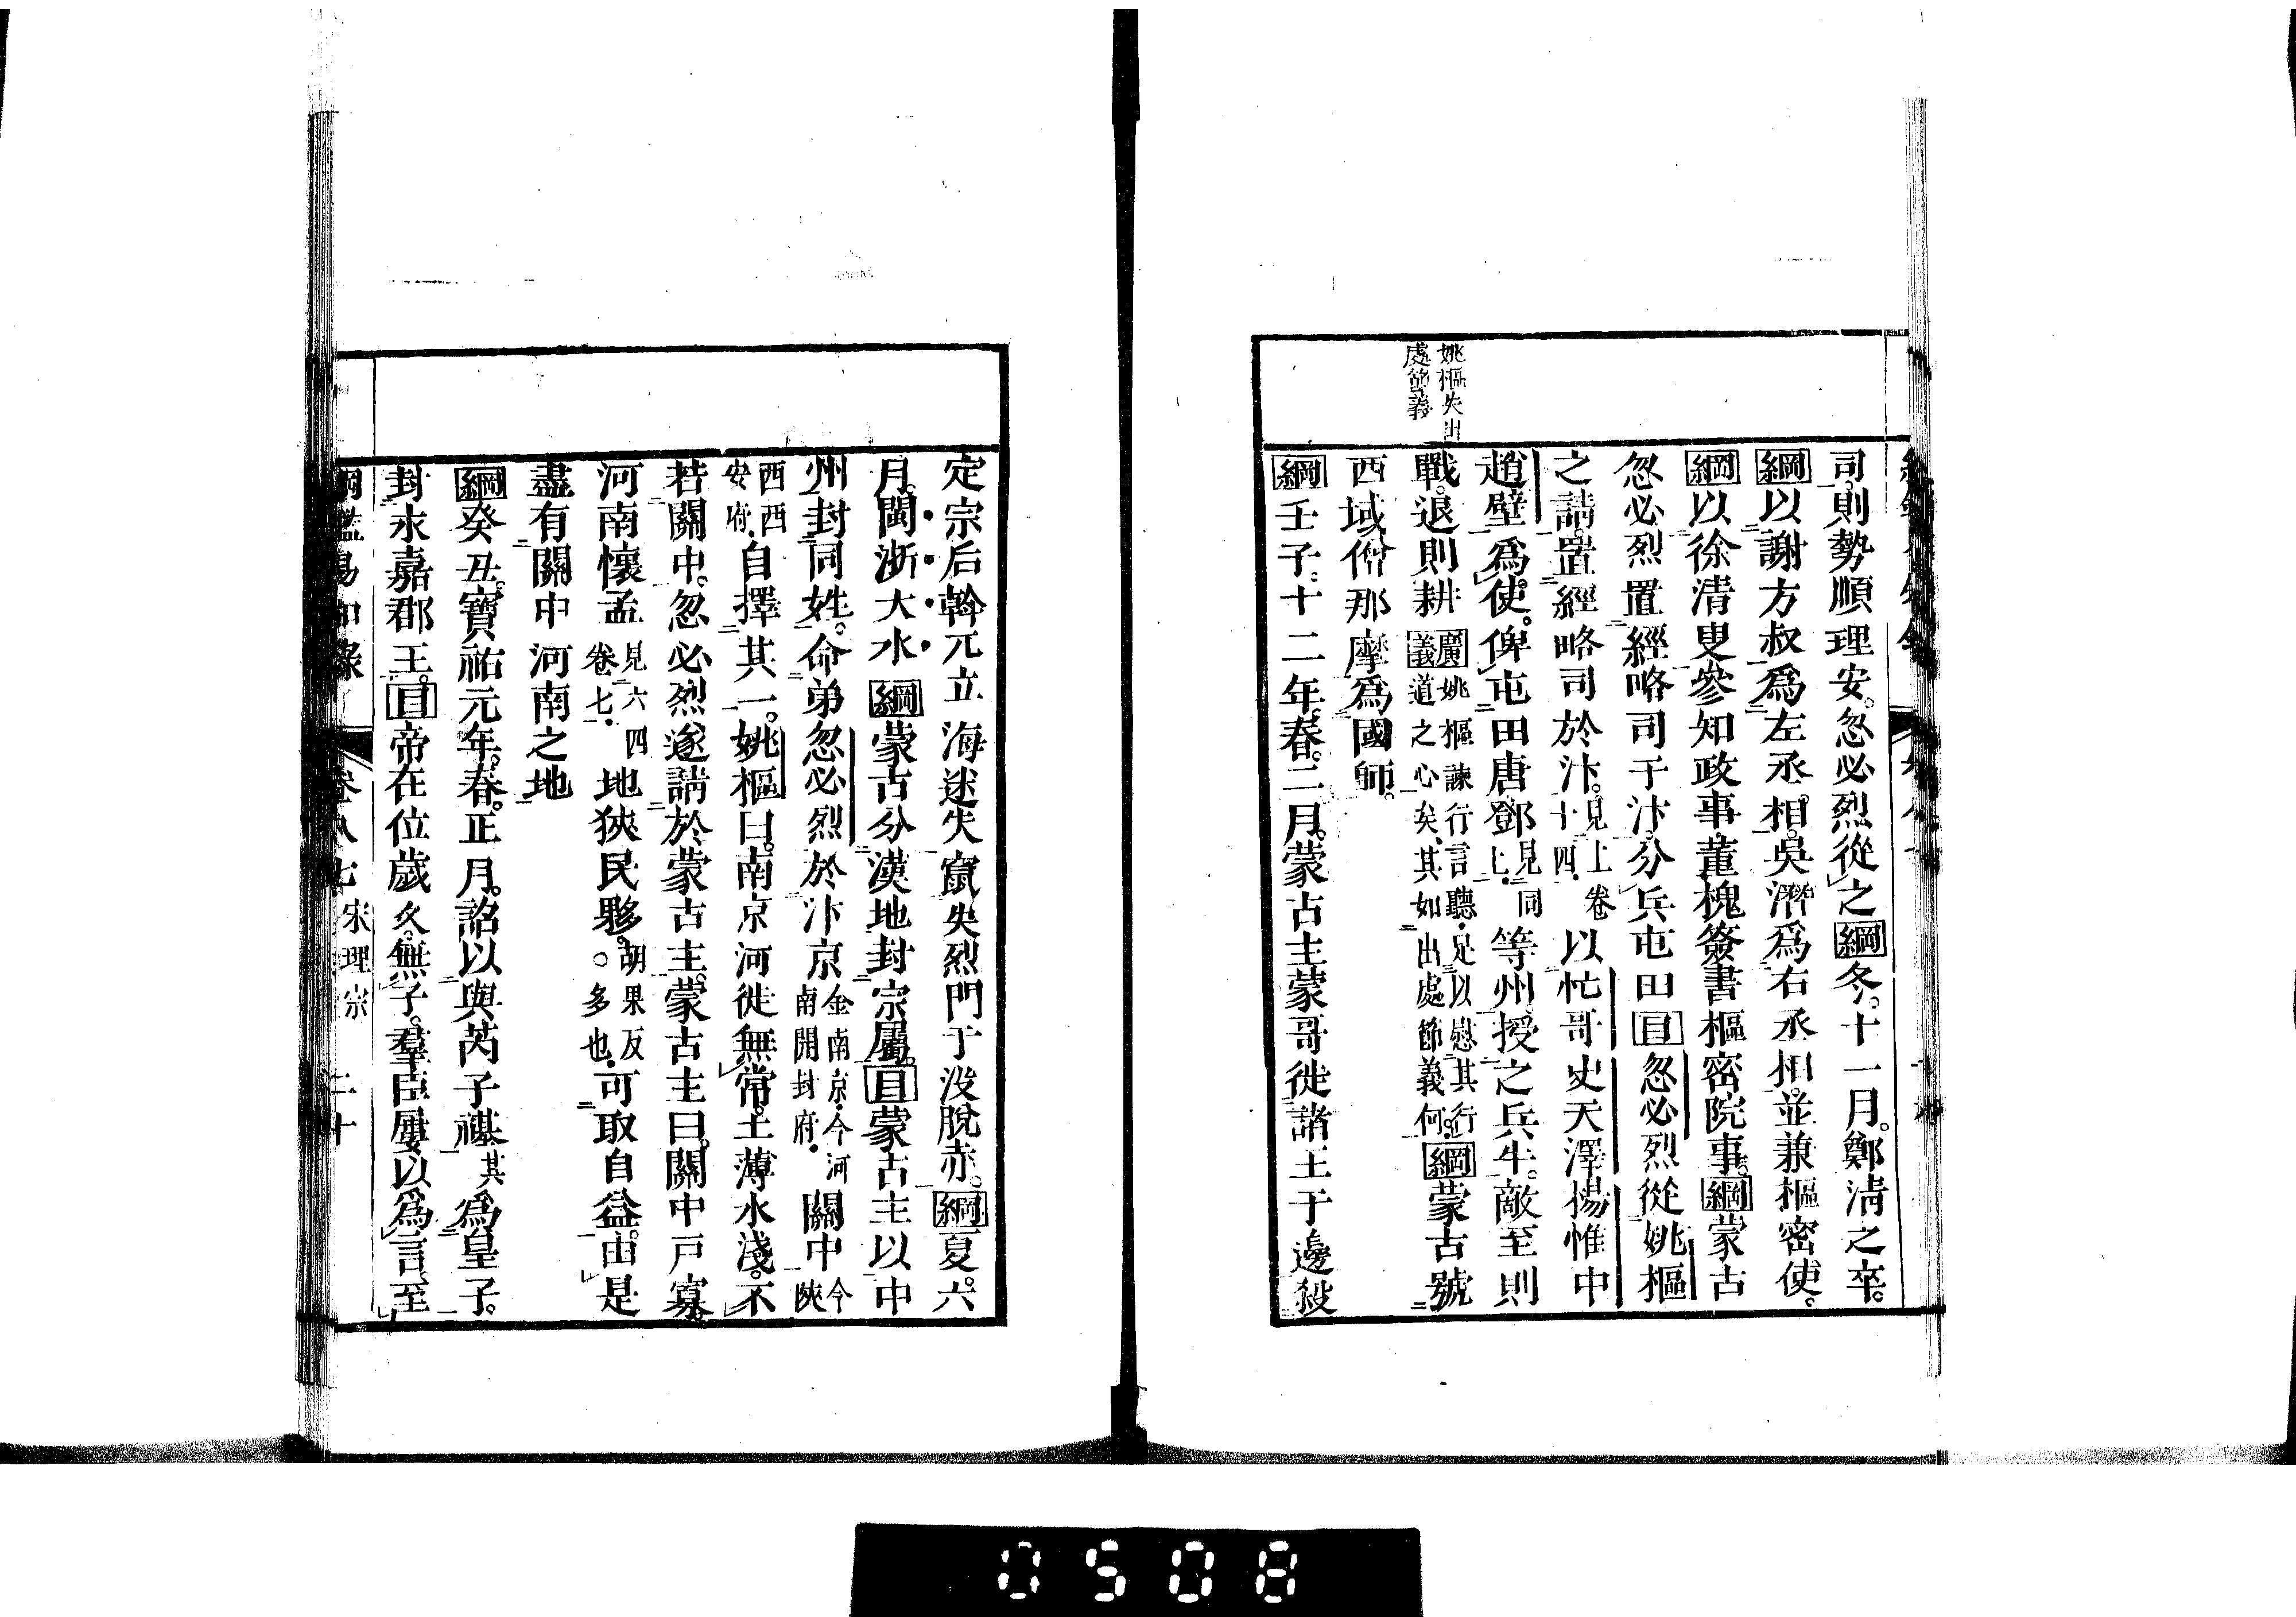 姚樞失出
處節義
司則勢順理安。忽必烈從之綱冬。十一月。鄭淸之卒。
綱以謝方叔爲左丞相。吳濳爲右丞相。並兼樞密使。
綱以徐清叟參知政事。董槐簽書樞密院事。綱蒙古
忽必烈置經略司于汴。分兵屯田目忽必烈從姚樞
之請。置經略司於汴。見上卷十四。以忙哥史天澤楊惟中
趙壁爲使。俾屯田唐鄧見同上。等州。授之兵牛。敵至則
戰。退則耕廣義姚樞諫行言聽。足以慰其行道之心矣、其如出處節義何。綱蒙古號
西域僧那摩爲國師。
綱壬子。十二年。春。二月。蒙古主蒙哥徙諸王于邊殺
定宗后斡兀立海迷失竄失烈門于沒脫赤。綱夏。六
月。閩浙大水綱蒙古分漢地封宗屬。目蒙古主以中
州封同姓。命弟忽必烈於汴京金南京、今河南開封府。關中今陝
西西安府。自擇其一。姚樞曰。南京河徙無常。土薄水淺。不
若關中。忽必烈遂請於蒙古主。蒙古主曰。關中戸寡。
河南懷孟見六四卷七。地狹民夥。胡果反○多也。可取自益。由是
盡有關中河南之地
綱癸丑。寶祐元年。春。正月。詔以與芮子禥其爲皇子。
封永嘉郡王。目帝在位歲久。無子。羣臣屢以爲言。至
綱鑑易知錄 卷八七 宋理宗 二十
0508